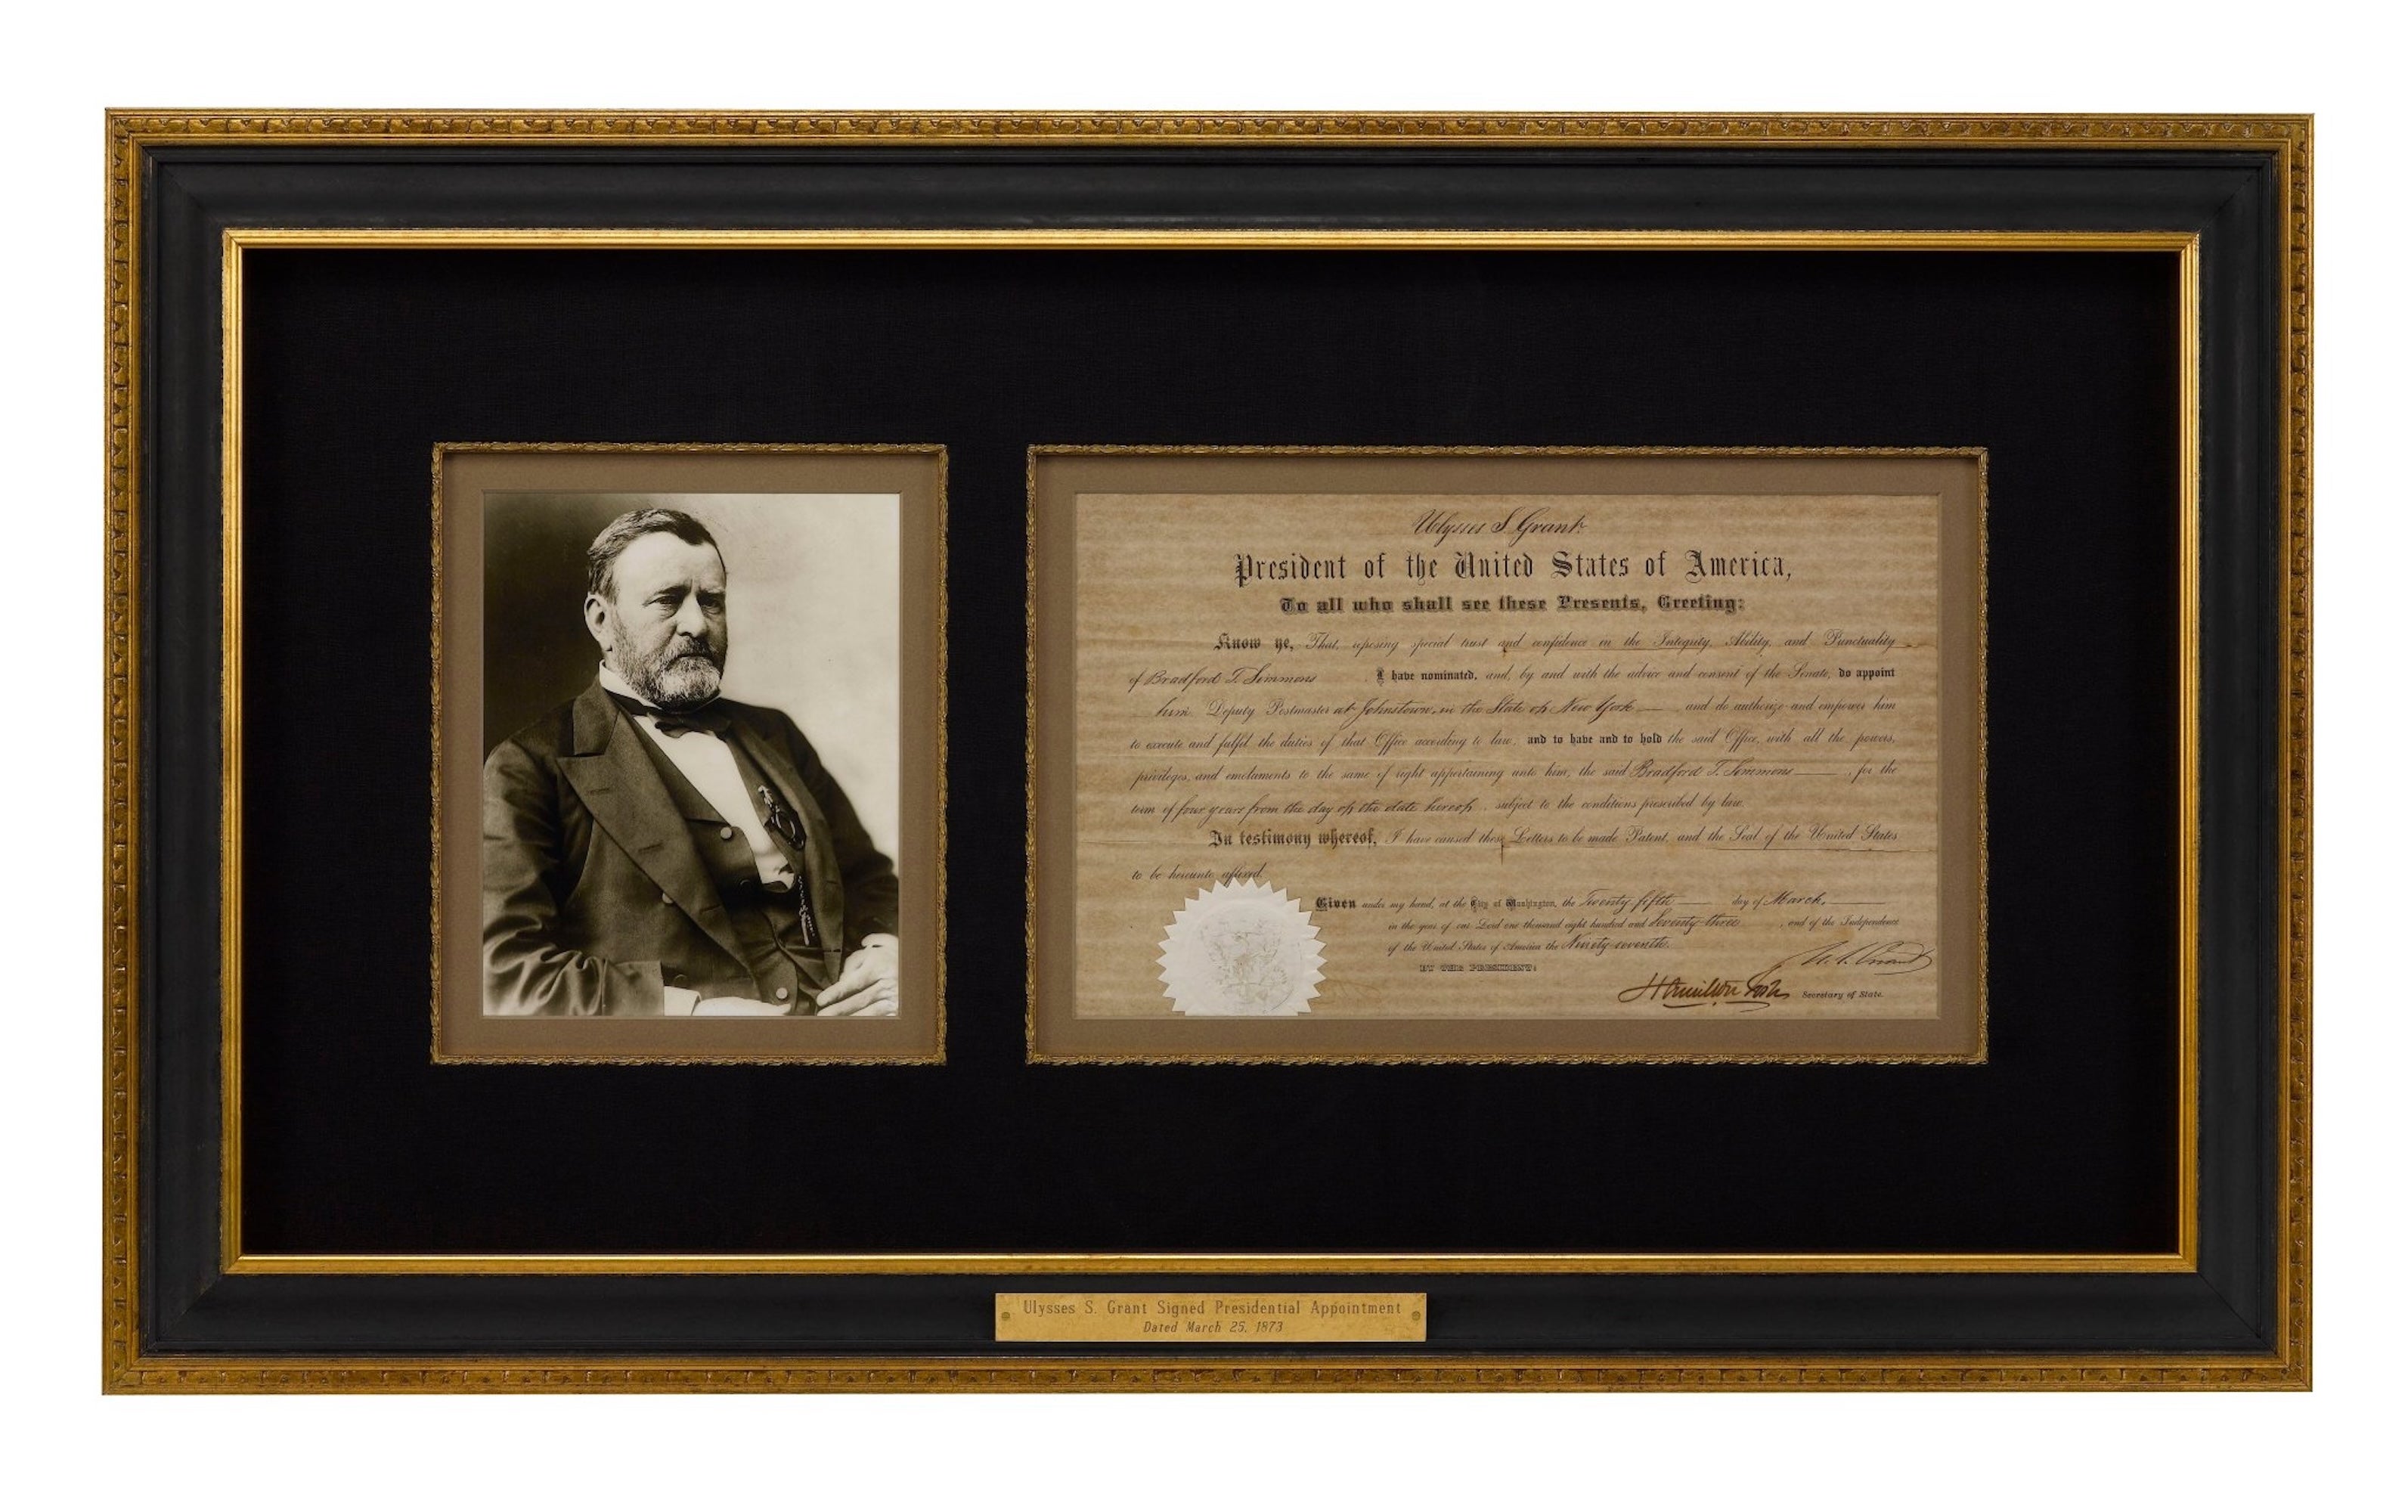 Ulysses S. Grant.
President of the United States of America,
To all who shall see these Presents, Greeting:
Know ye, That, reposing special trust and confidence in the Integrity, Ability, and Punctuality
of Bradford T. Simmons I have nominated, and, by and with the advice and consent of the Senate, do appoint
him Deputy Postmaster at Johnstown, in the State of New York and do authorize and empower him
to execute and fulfil the duties of that Office according to law, and to have and to hold the said Office, with all the powers,
privileges, and emoluments to the same of right appertaining unto him, the said Bradford T. Simmons, for the
term of four years from the day of the date hereof, subject to the conditions prescribed by law.
In testimony whereof, I have caused these Letters to be made Patent, and the Seal of the United States
to be hereunto affixed.
Given under my hand, at the City of Washington, the Twenty fifth day of March,
in the year of our Lord one thousand eight hundred and Seventy three, and of the Independence
of the United States of America the Ninety seventh.
U. S. Grant
BY THE PRESIDENT:
Hamilton Fish Secretary of State.
Ulysses S. Grant Signed Presidential Appointment
Dated March 25, 1873